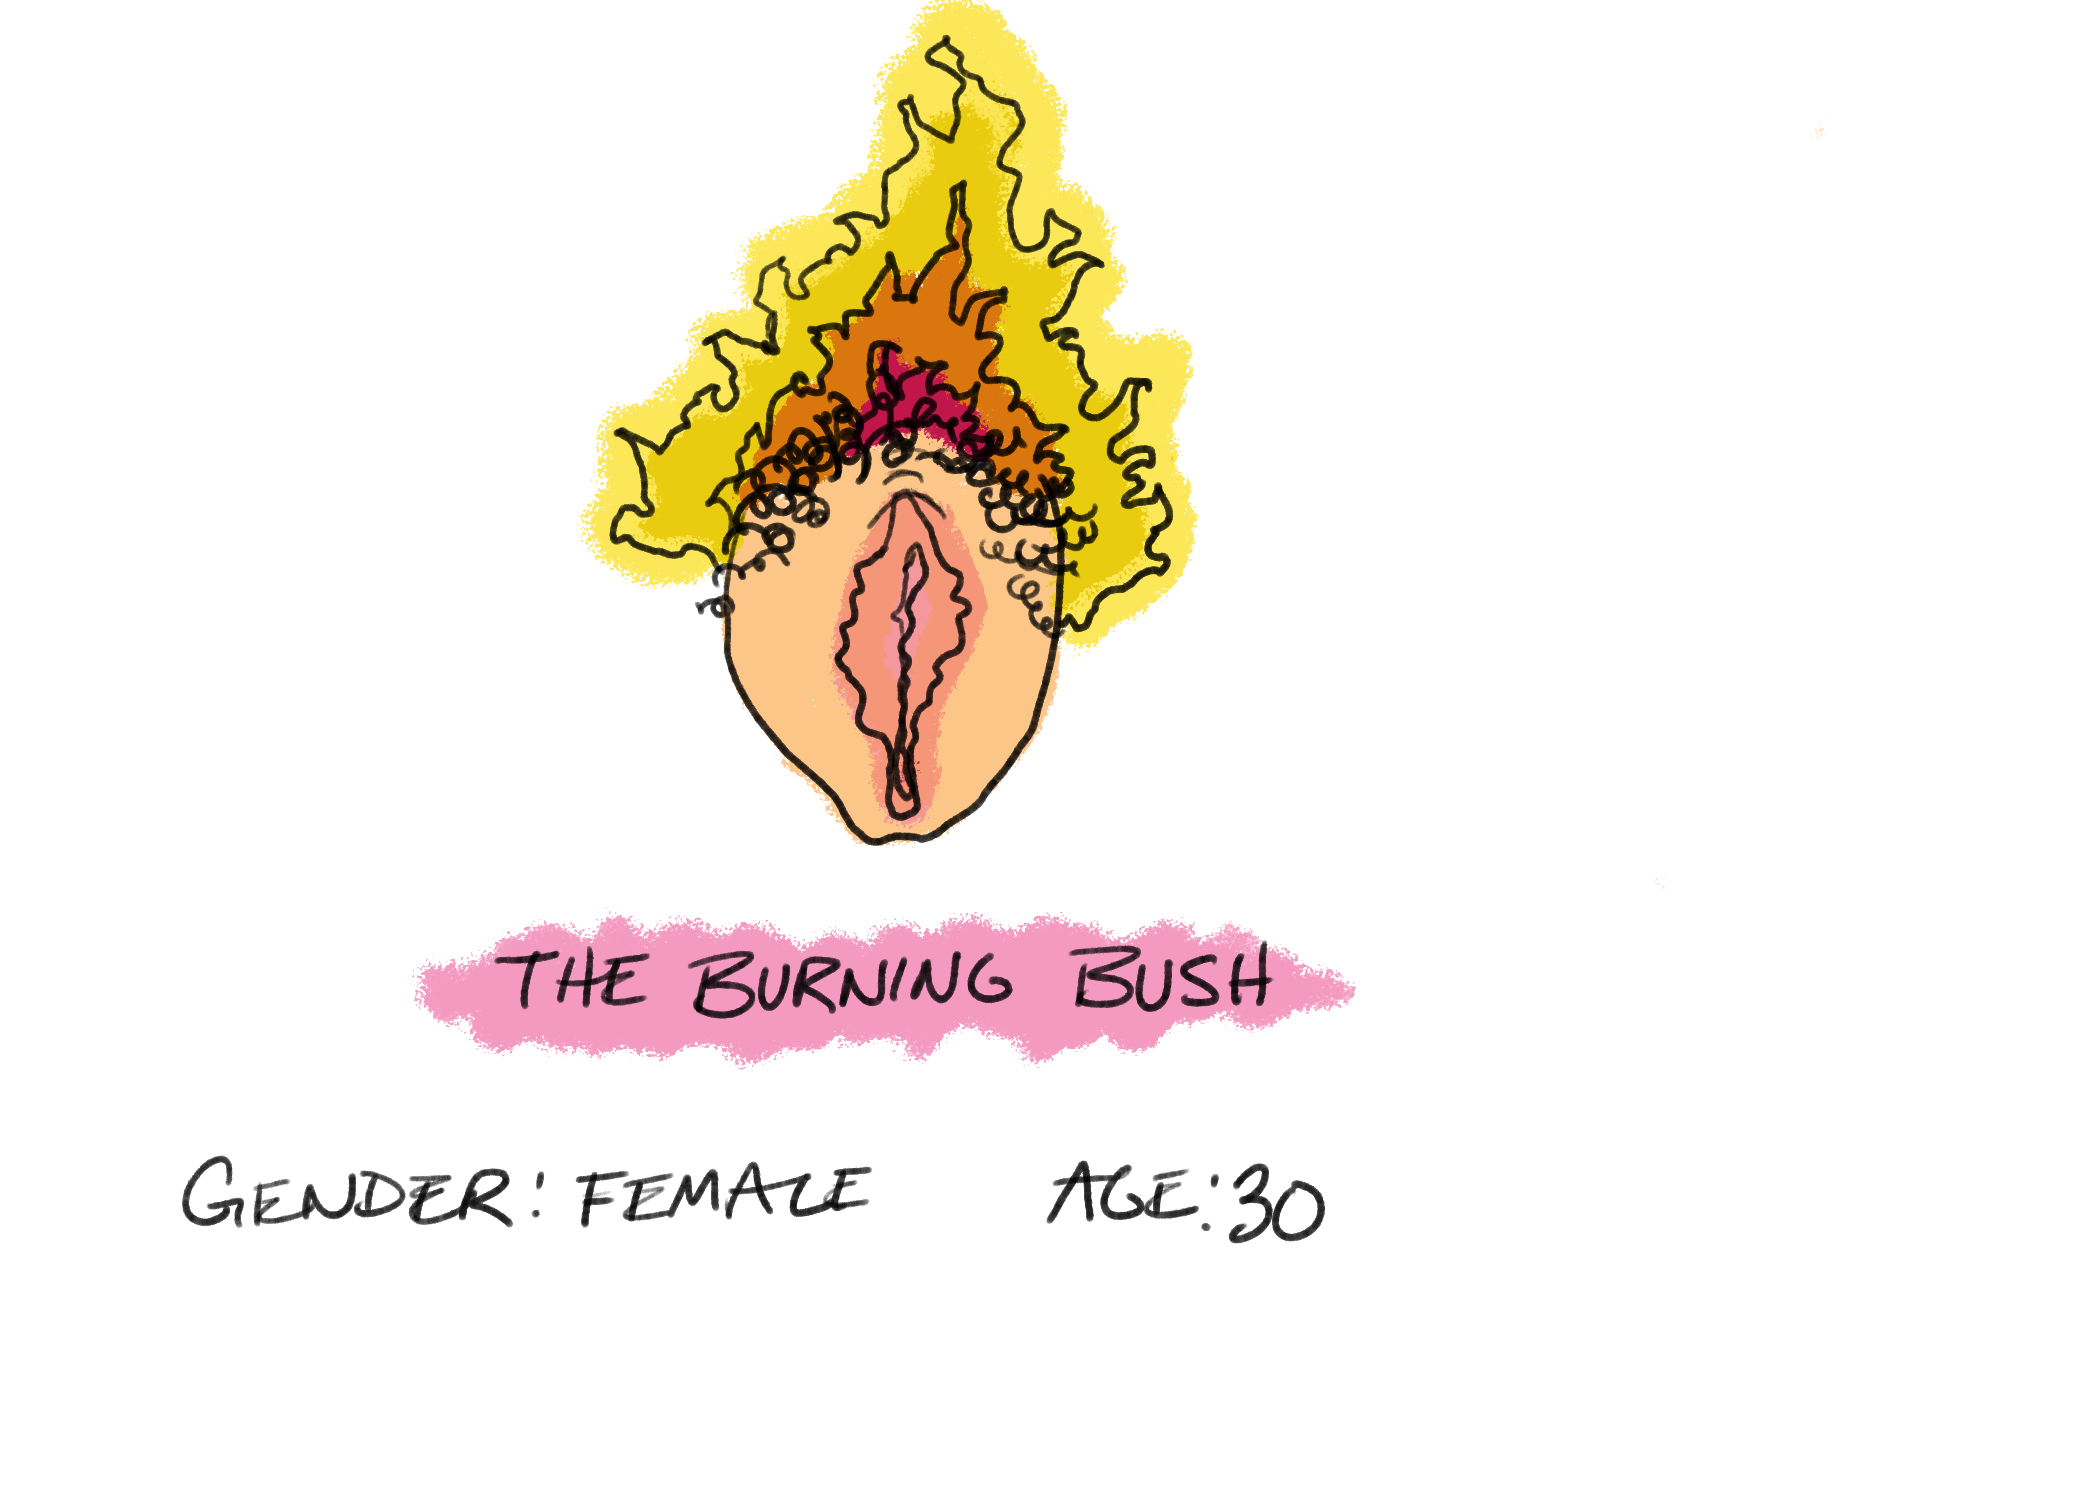 THE BURNING BUSH
GENDER: FEMALE AGE: 30